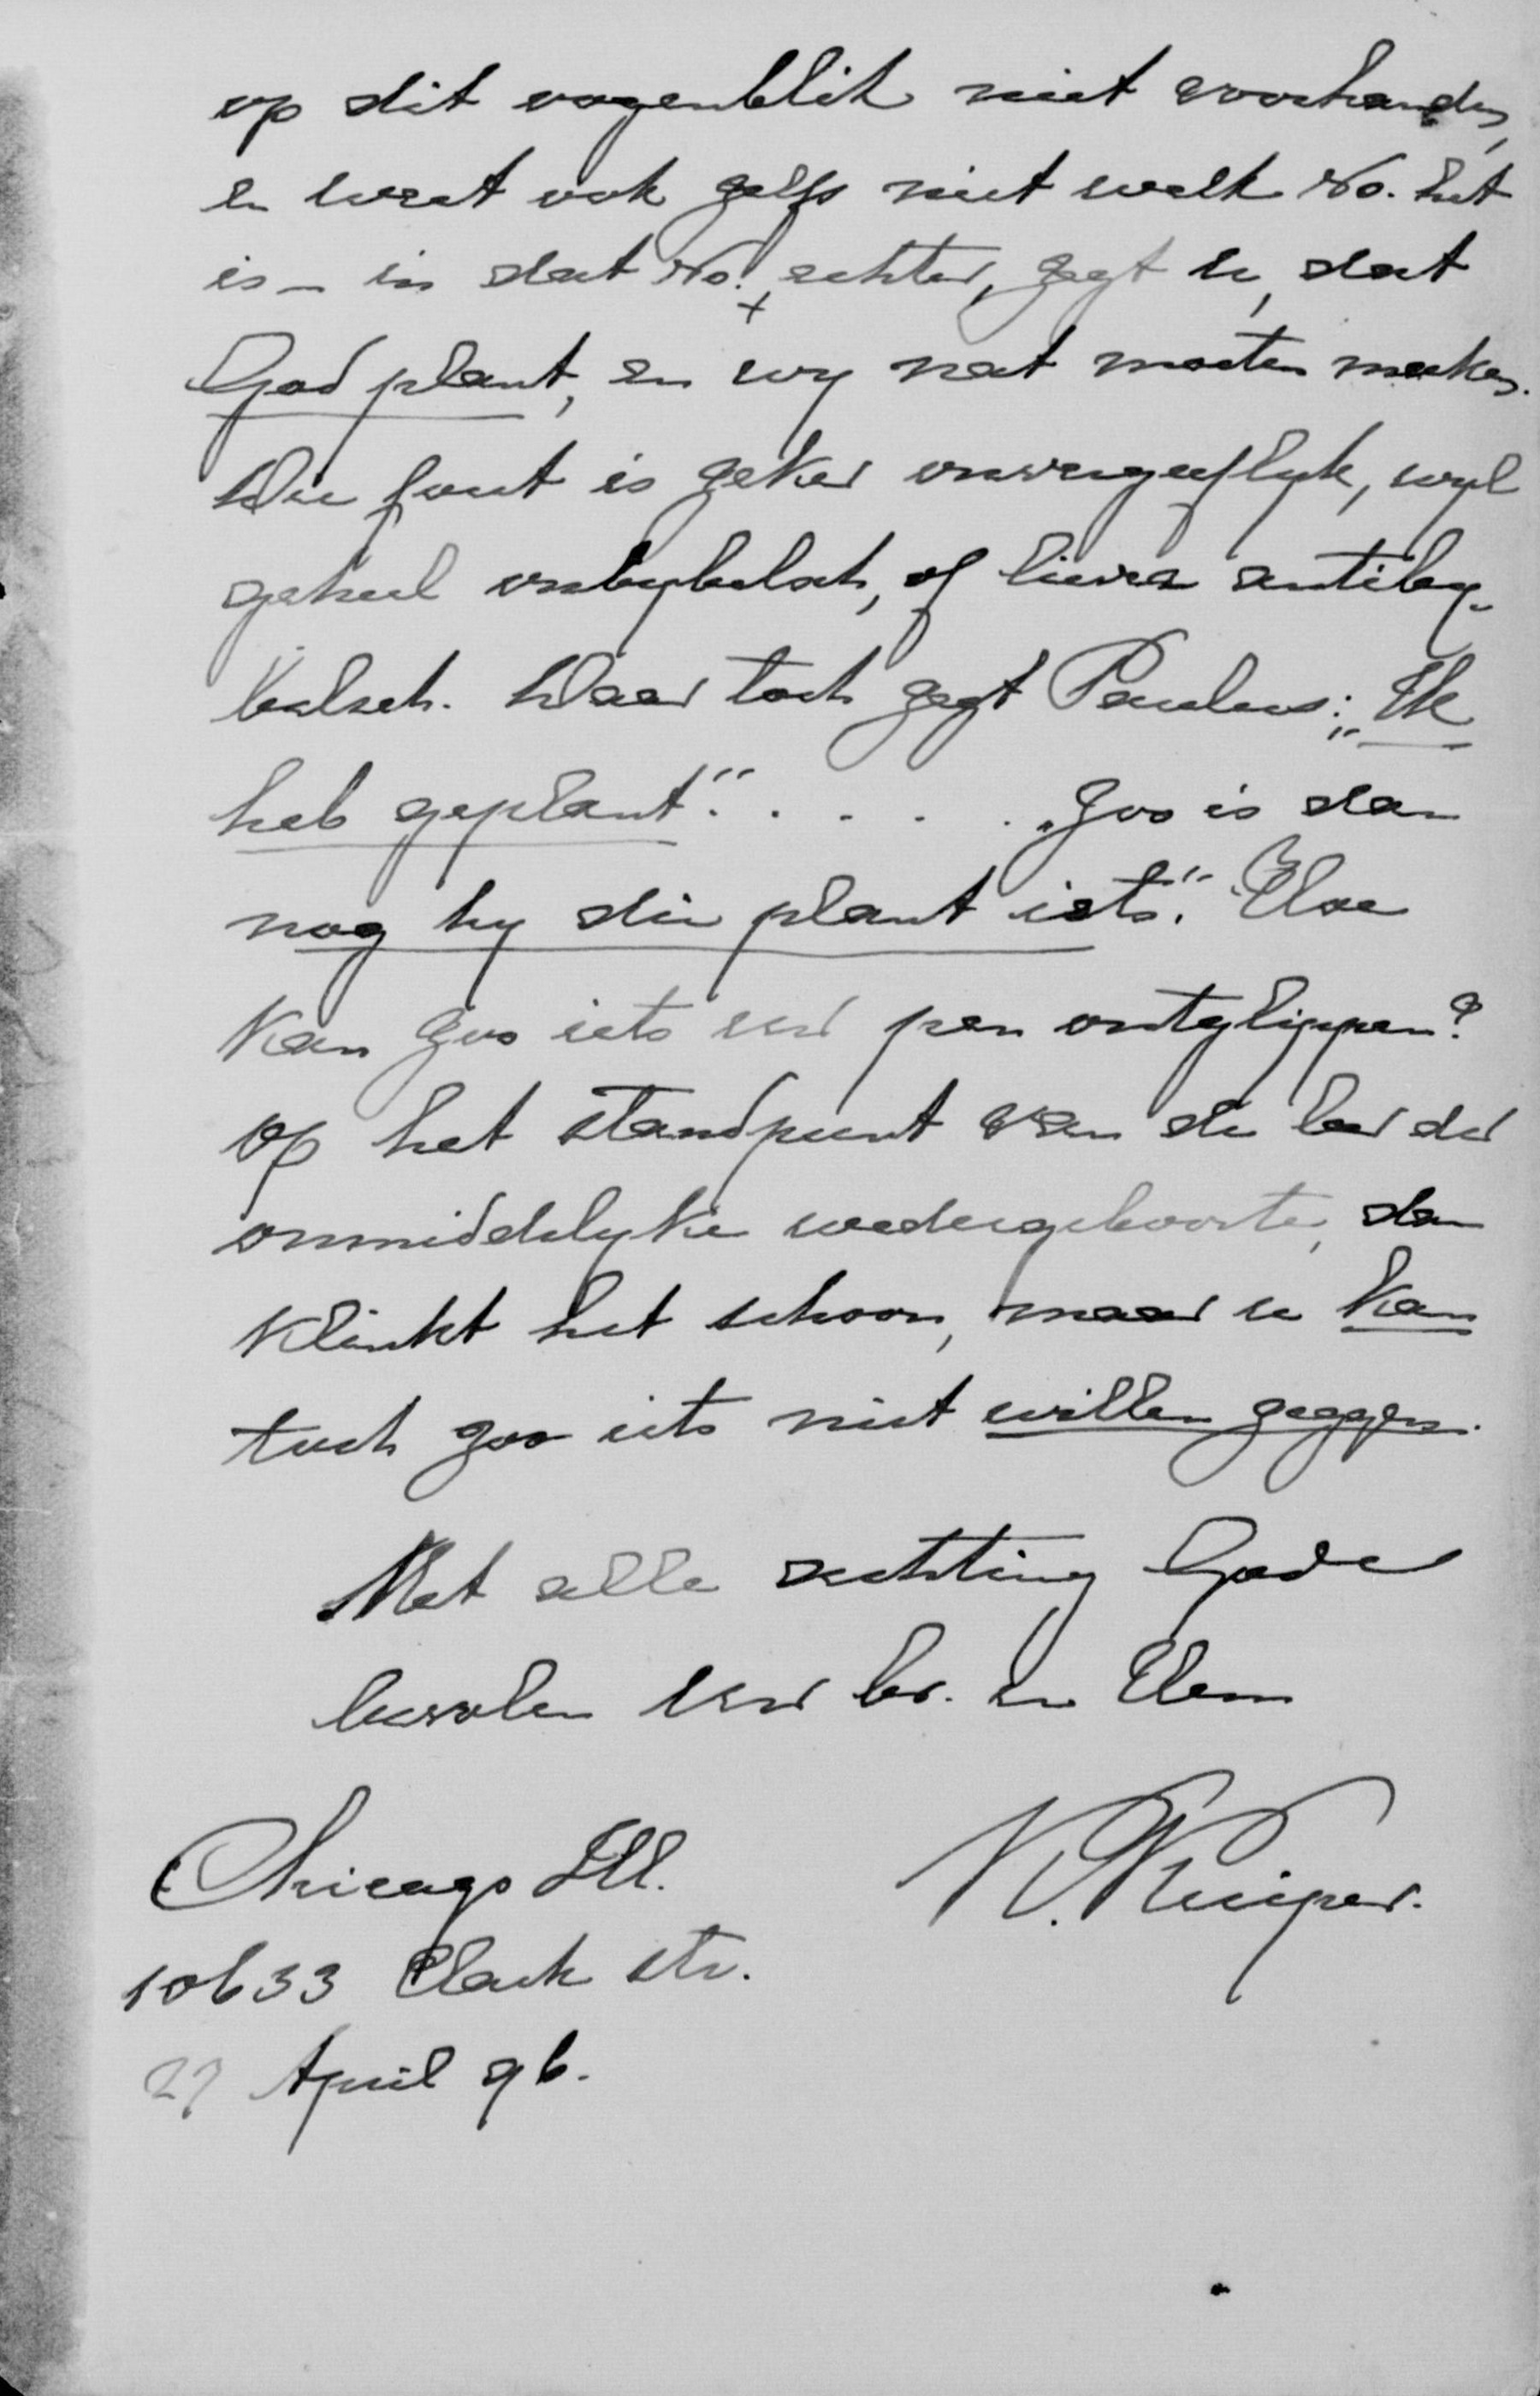 op dit oogenblik niet voorhanden,
en weet ook zelfs niet welk No. het
is – in dat No. echter, zegt u, dat
+
God plant, en wy nat moeten maken.
Die fout is zeker onvergeeflyk, wyl
geheel onbybelsch, of liever antiby-
belsch. Daar toch zegt Paulus: „Ik
heb geplant". . . . . . „Zoo is dan
nog hy die plant iets." Hoe
kan zoo iets uw pen ontglippen?
Op het standpunt van de leer der
onmiddelyke wedergeboorte, dan
klinkt het schoon, maar u kan
toch zoo iets niet willen zeggen.
Met alle achting Gode
bevolen uw br. en Dem
Chicago Ill.
K. Kuiper.
10633 Clark str.
27 April 96.